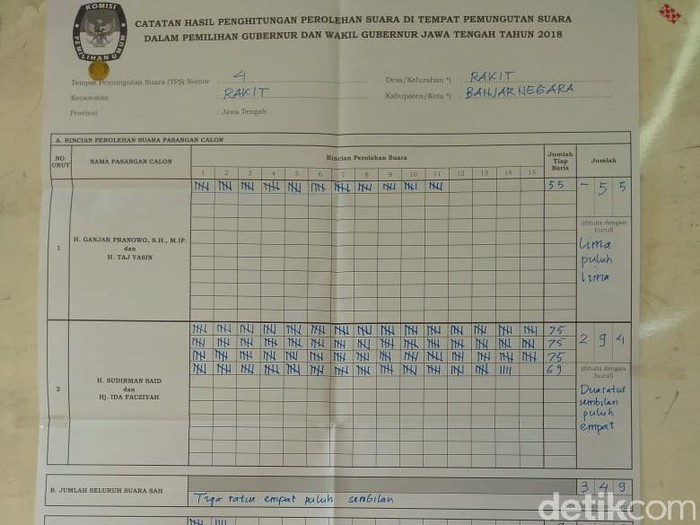 KOMISI
PEMILIHAN UMUM
CATATAN HASIL PENGHITUNGAN PEROLEHAN SUARA DI TEMPAT PEMUNGUTAN SUARA
DALAM PEMILIHAN GUBERNUR DAN WAKIL GUBERNUR JAWA TENGAH TAHUN 2018
Tempat Pemungutan Suara (TPS) Nomor : 4
Desa/Kelurahan *) : RAKIT
Kecamatan : RAKIT
Kabupaten/Kota *) : BANJARNEGARA
Provinsi : Jawa Tengah
A. RINCIAN PEROLEHAN SUARA PASANGAN CALON
NO. URUT NAMA PASANGAN CALON Rincian Perolehan Suara Jumlah Tiap Baris Jumlah
1 2 3 4 5 6 7 8 9 10 11 12 13 14 15
55 - 5 5
(ditulis dengan huruf)
1 H. GANJAR PRANOWO, S.H., M.IP.
dan
H. TAJ YASIN
Lima
puluh
lima
75 2 9 4
75
75
69
(ditulis dengan huruf)
2 H. SUDIRMAN SAID
dan
Hj. IDA FAUZIYAH
Duaratus
sembilan
puluh
empat
B. JUMLAH SELURUH SUARA SAH 3 4 9
Tiga ratus empat puluh sembilan
detikcom